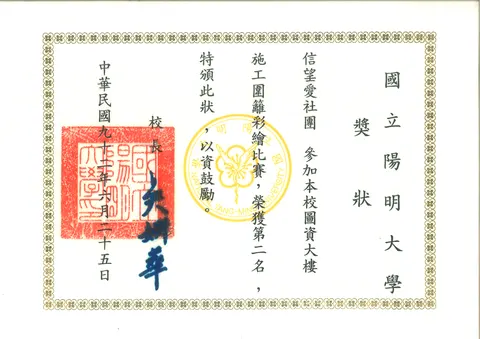 國立陽明大學
獎狀
信望愛社團 參加本校圖資大樓
施工圍籬彩繪比賽，榮獲第二名，
特頒此狀，以資鼓勵。
校長 吳妍華
中華民國九十二年六月二十五日